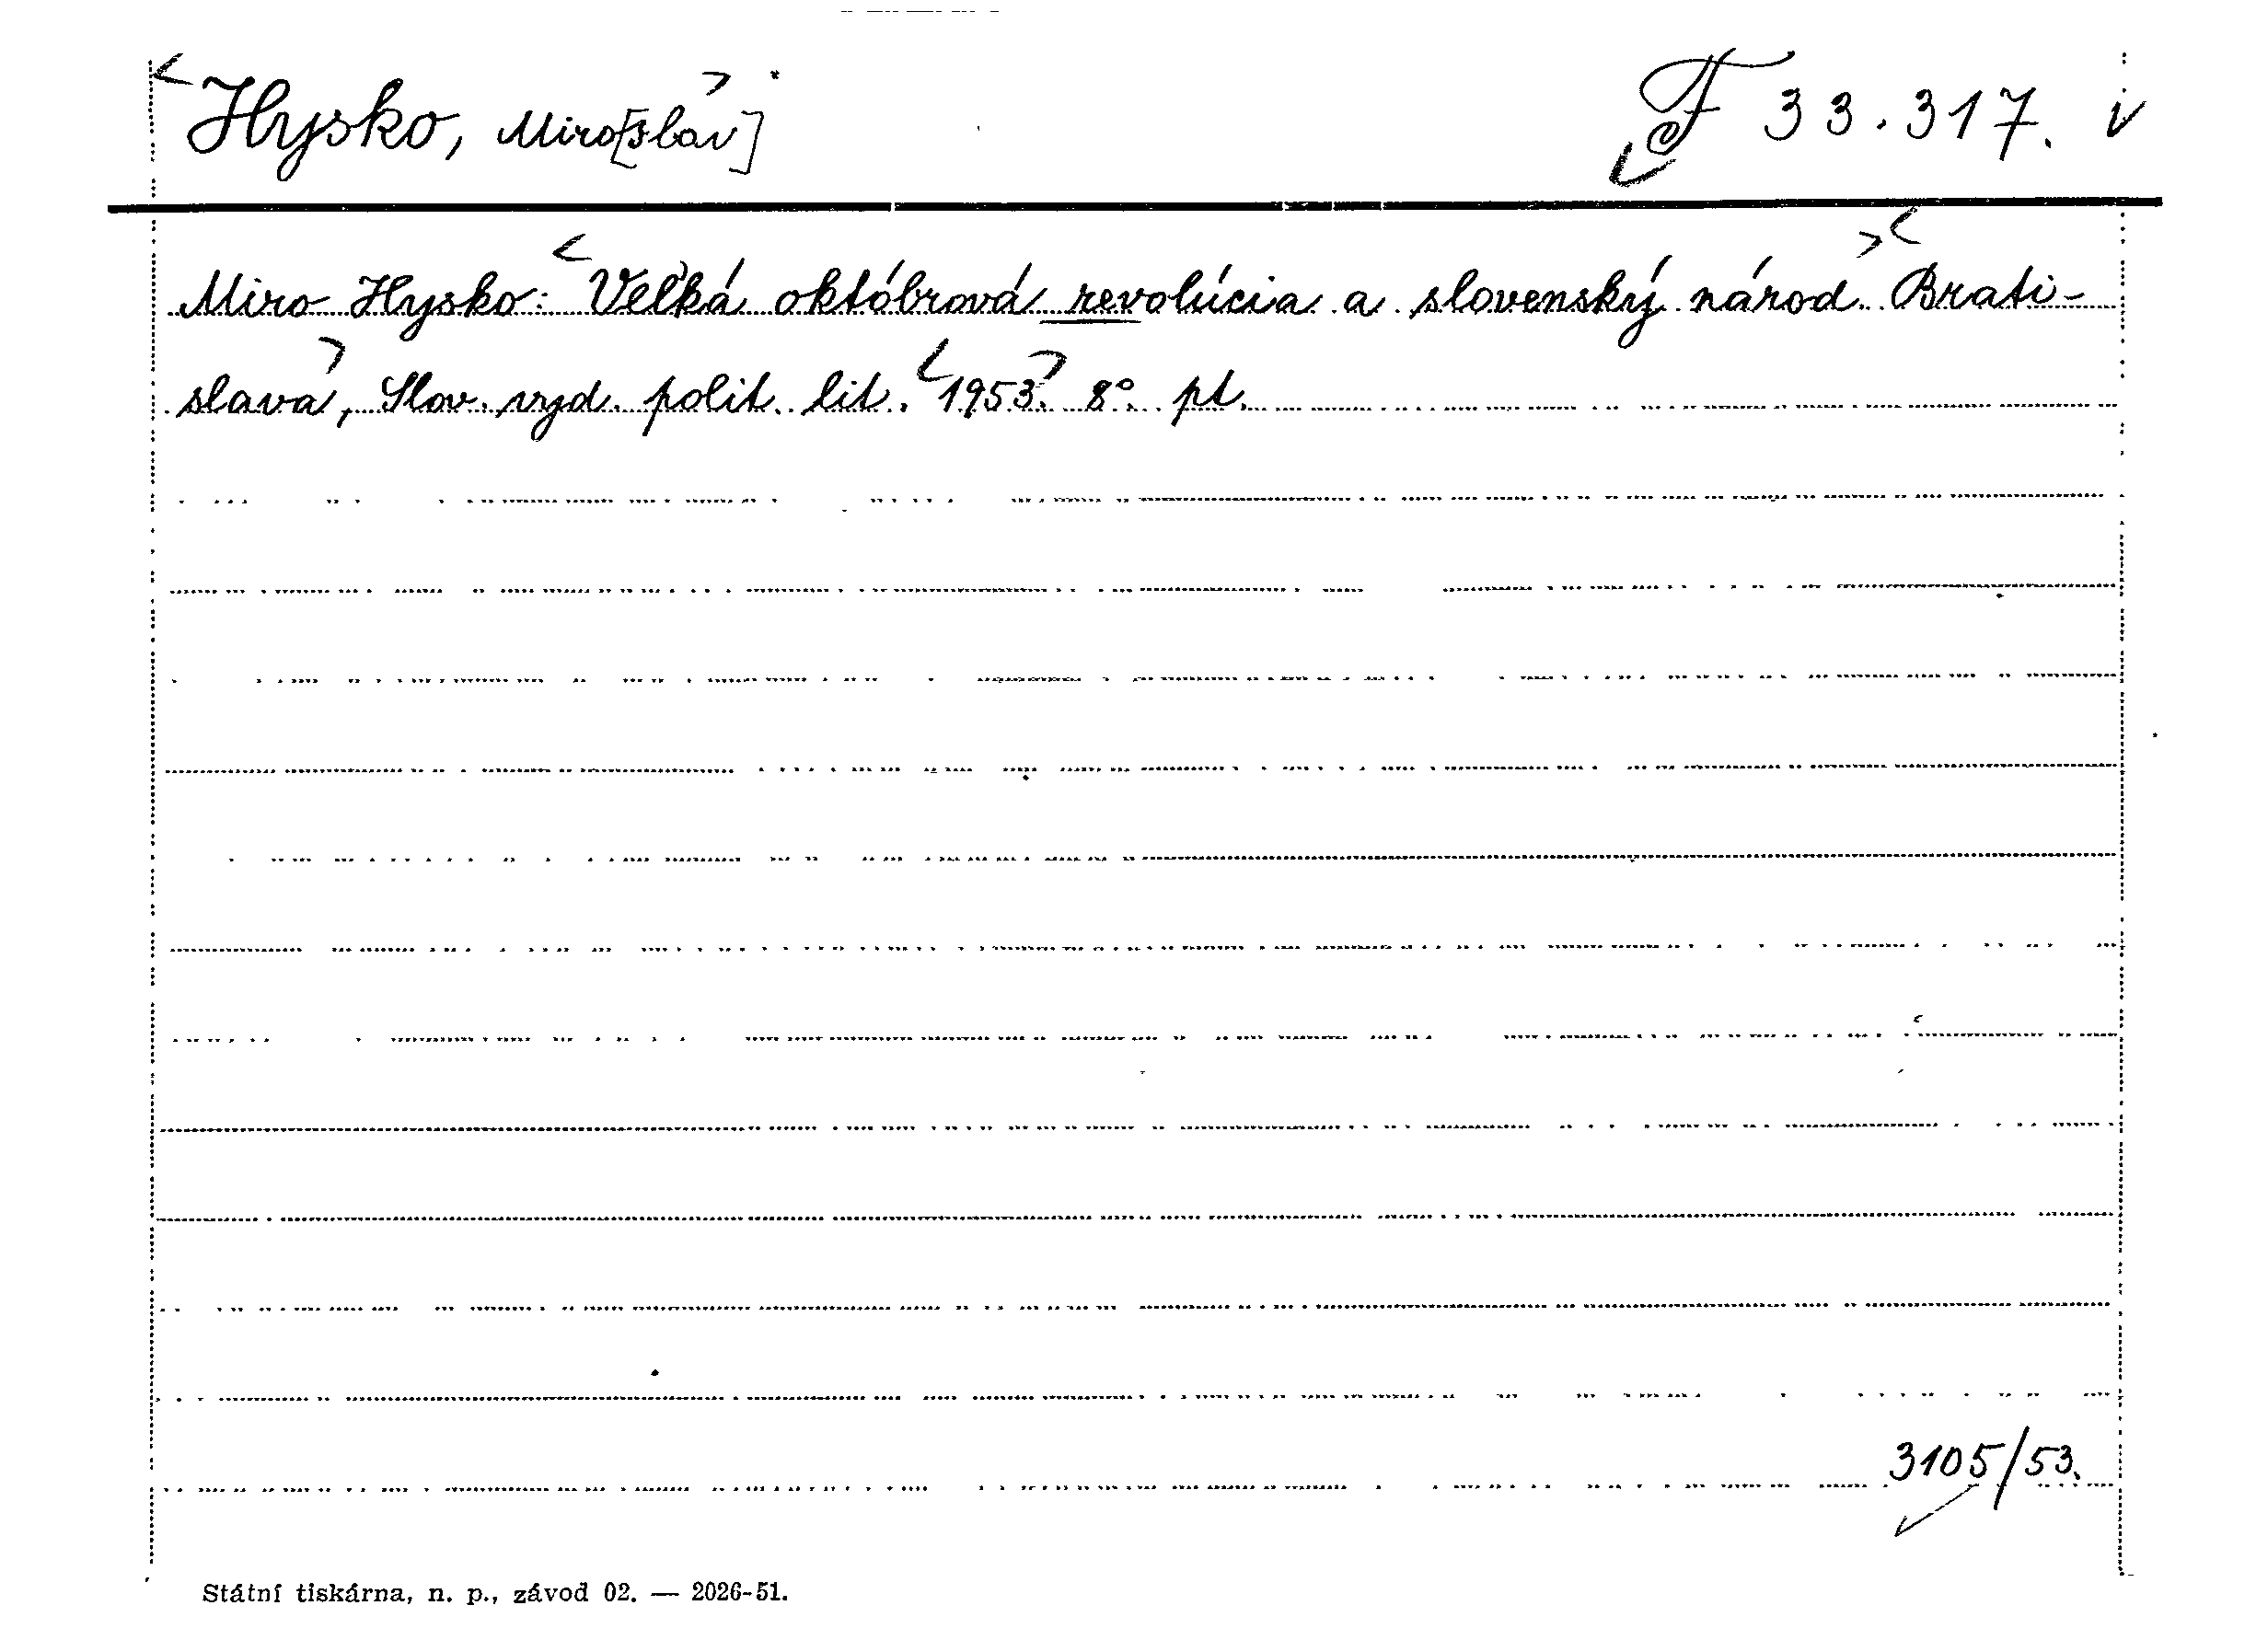 Hysko, Miro[slav] F 33.317.
Miro Hysko: Veľká októbrová revolúcia a slovenský národ. Brati-
slava, Slov. vyd. polit. lit. 1953. 8°. pt.
3105/53.
Státní tiskárna, n. p., závod 02. — 2026-51.